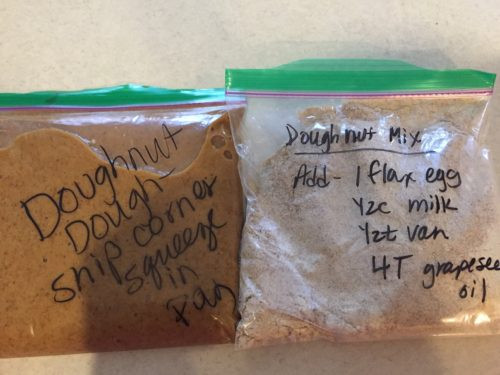 Doughnut
Dough-
snip corner
squeeze
in
Pan
Doughnut Mix
Add - 1 flax egg
1/2c milk
1/2t van
4T grapesee
oil